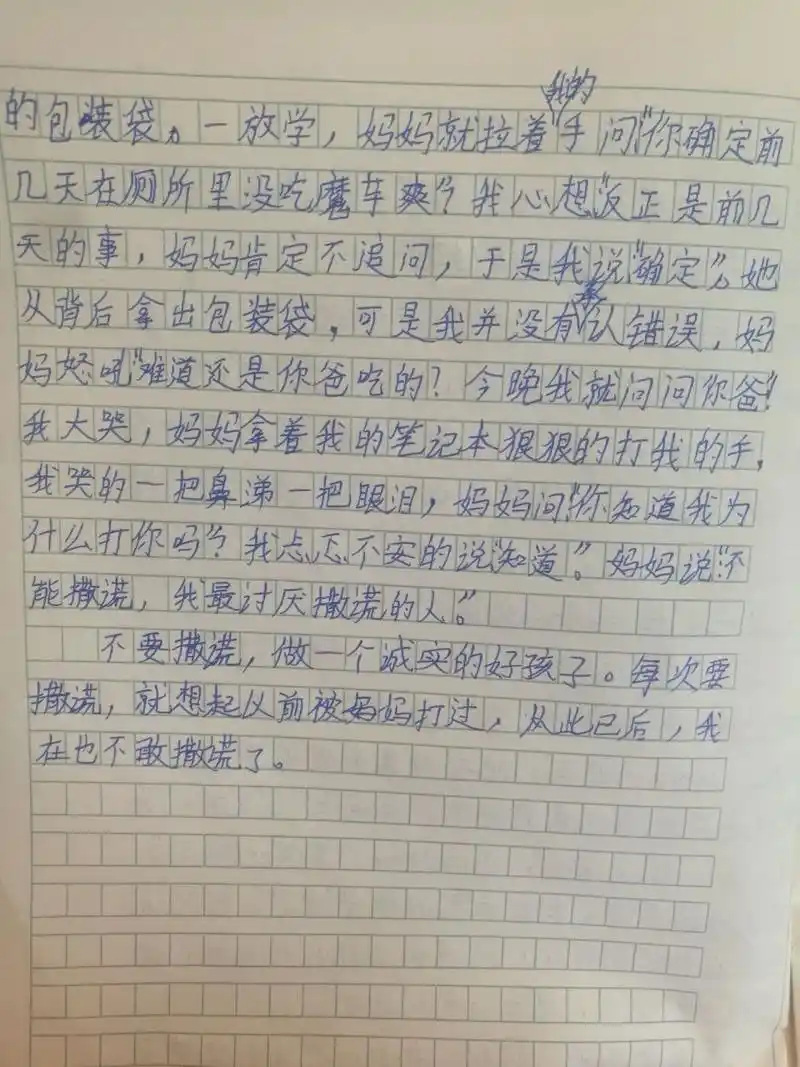 的包装袋。一放学，妈妈就拉着我的手问“你确定前
几天在厕所里没吃魔车爽”？我心想“反正是前几
天的事，妈妈肯定不追问，于是我说“确定”。她
从背后拿出包装袋，可是我并没有承认错误，妈
妈怒吼“难道还是你爸吃的？今晚我就问问你爸！”
我大哭，妈妈拿着我的笔记本狠狠的打我的手，
我哭的一把鼻涕一把眼泪，妈妈问“你知道我为
什么打你吗”？我忐忑不安的说“知道”。妈妈说“不
能撒谎，我最讨厌撒谎的人。”
不要撒谎，做一个诚实的好孩子。每次要
撒谎，就想起以前被妈妈打过，从此已后，我
在也不敢撒谎了。